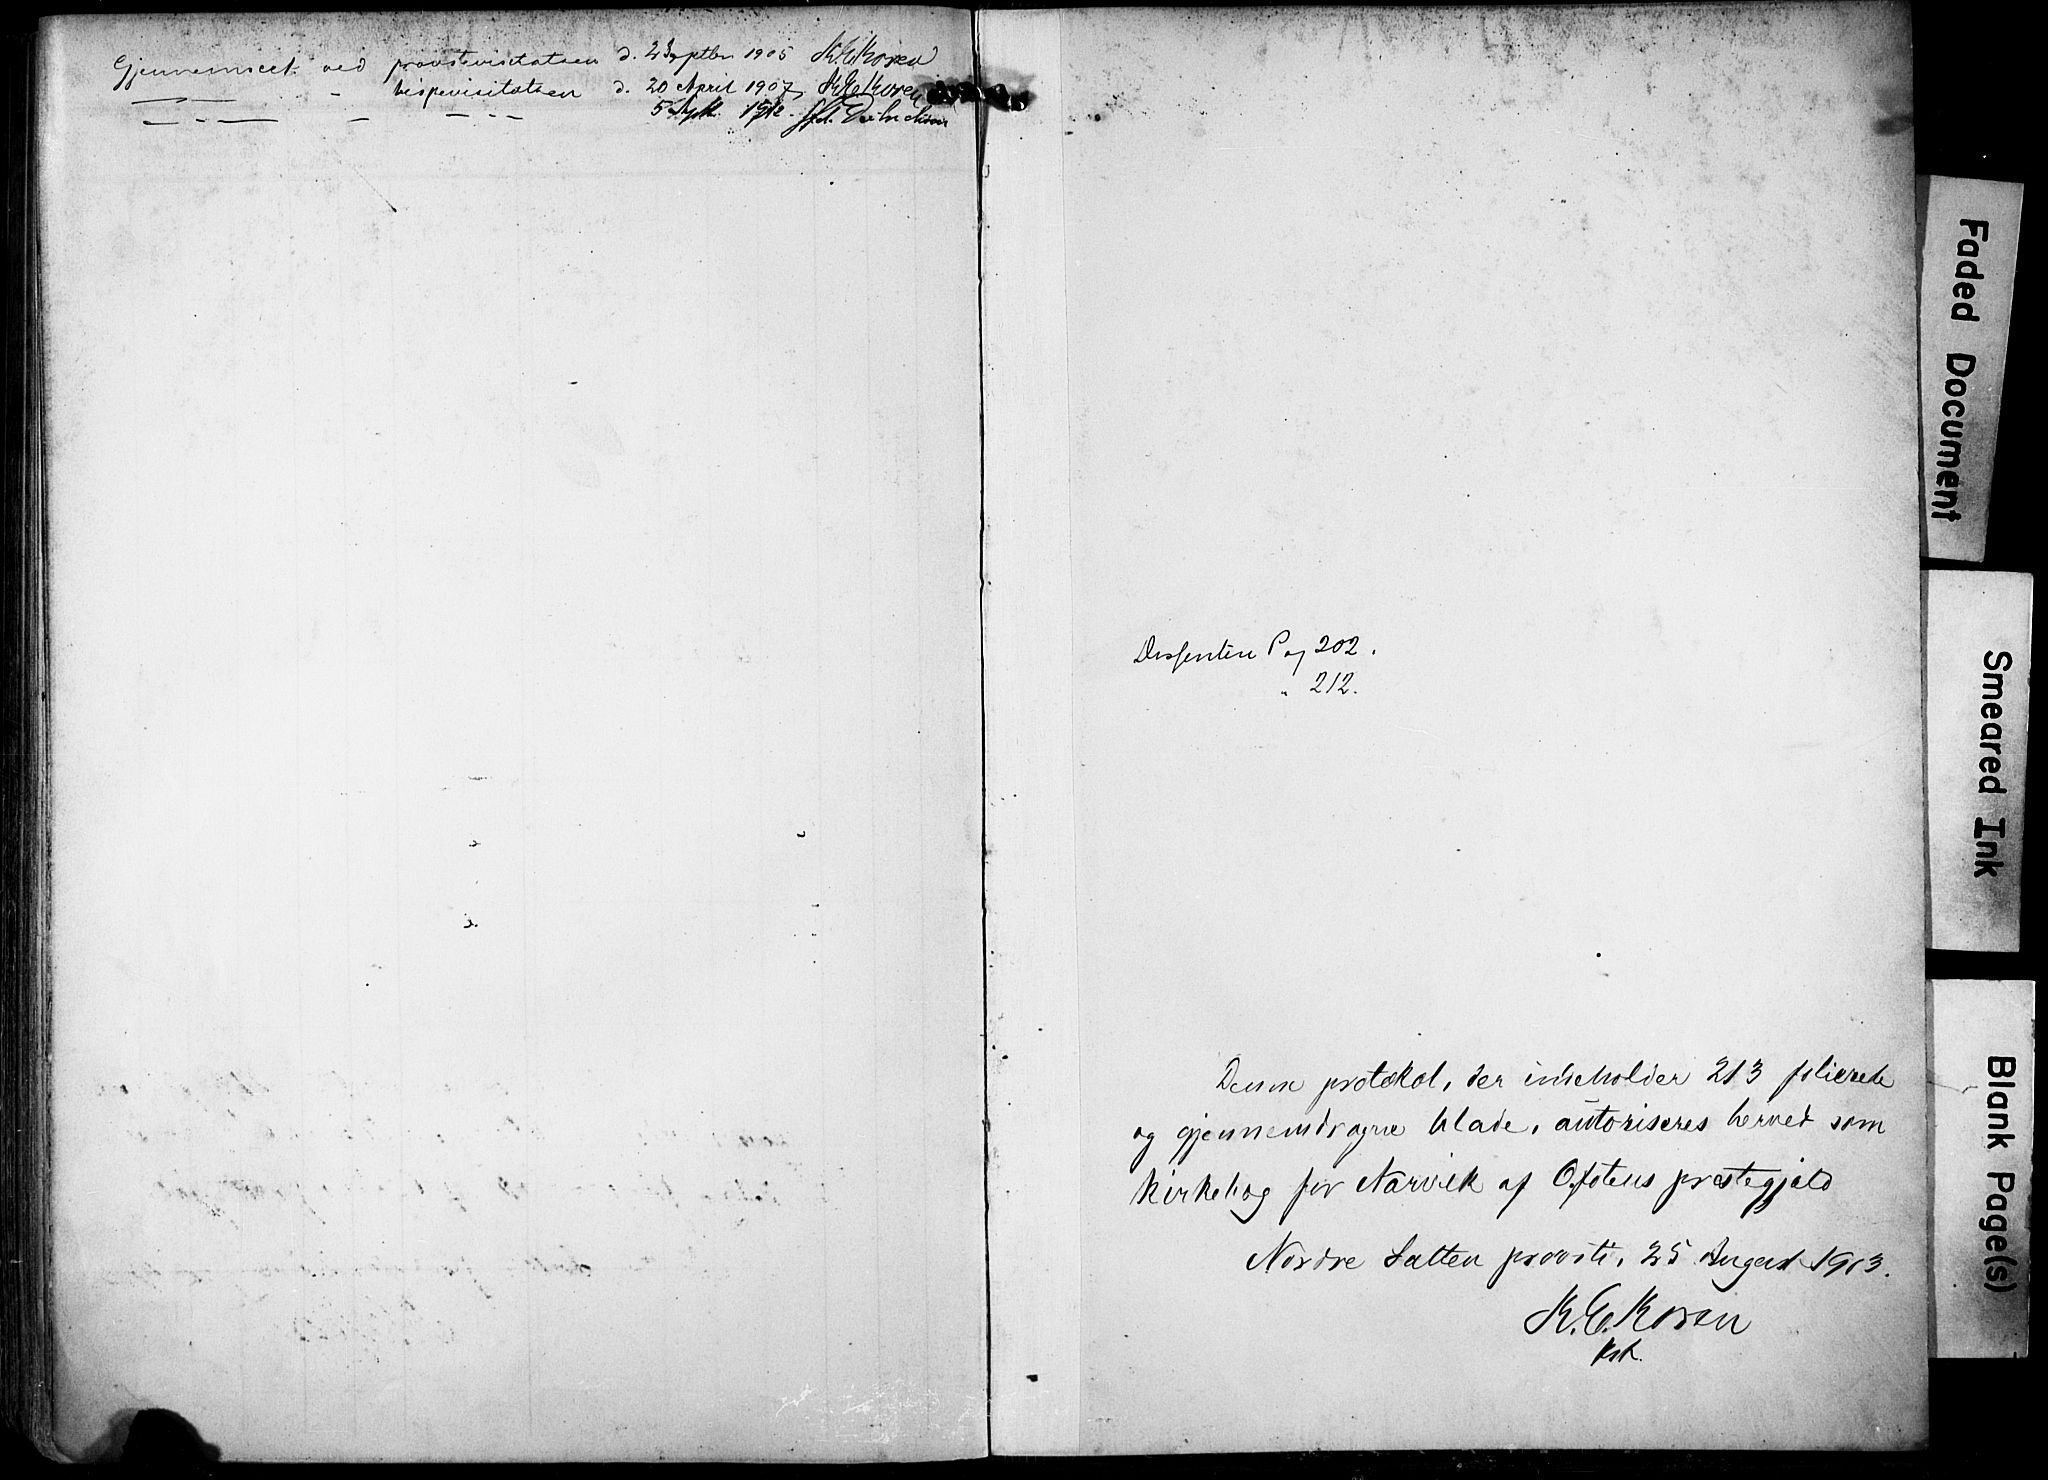 Gjennemseet ved provstevisitatsen d. 2 Septbr 1905 K.E.Koren
— " — - bispevisitatsen d. 20 April 1907, K.E.Koren
— " — - — " — 5 Septb. 1912.
Dissentere Pag 202.
" 212.
Denne protokol, der indeholder 213 folierede
og gjennemdragne blade, autoriseres herved som
kirkebog for Narvik af Ofotens præstegjeld
Nordre Salten provsti, 25 August 1903.
K.E.Koren
Faded Document
Smeared Ink
Blank Page(s)